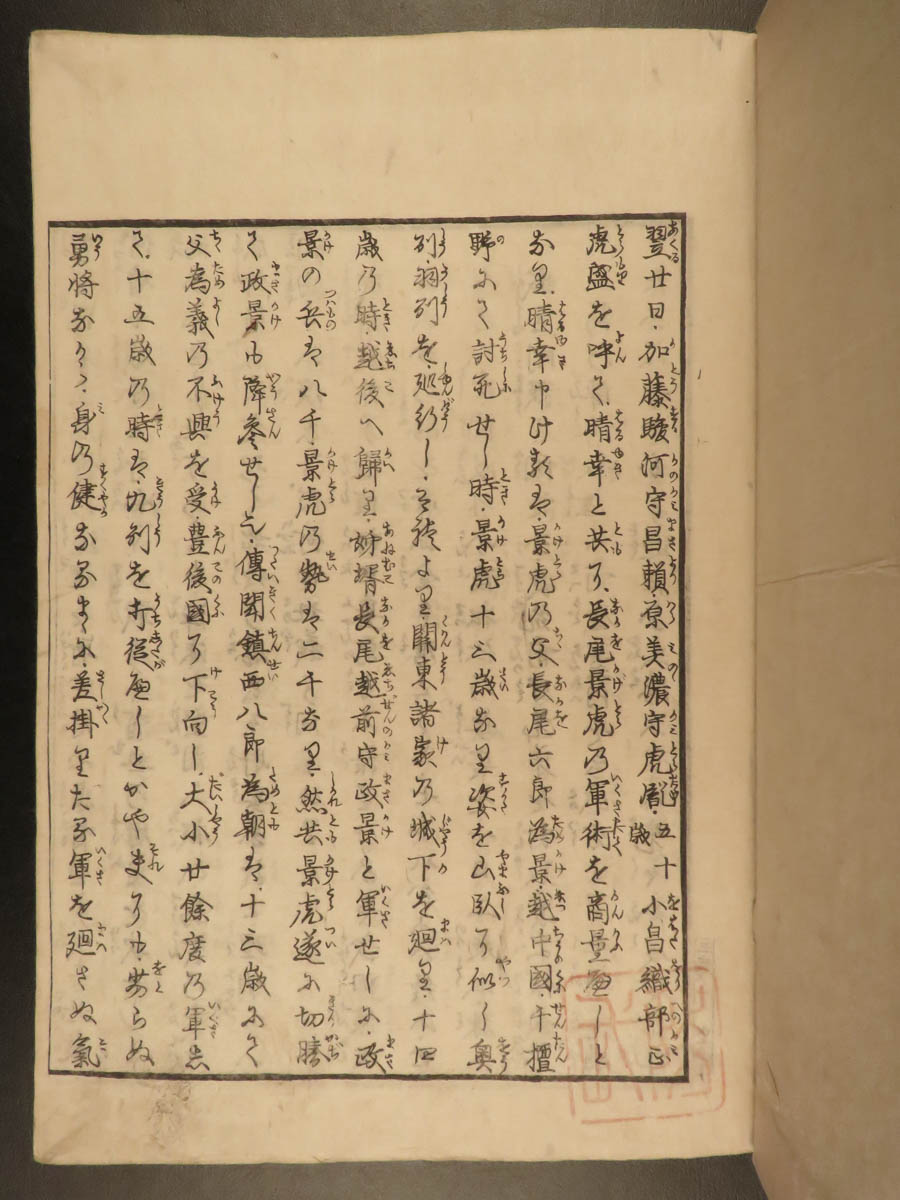 翌廿日、加藤駿河守昌頼、原美濃守虎胤五十歳小畠織部正
虎盛を呼て、晴幸と共に、長尾景虎乃軍術を商量すべしと
なり、晴幸申けるは、景虎乃父、長尾六郎為景、越中國、千檀
野にて討死せし時、景虎十三歳なり姿を山臥に似し奥
列、羽列を、廻行し、それより、關東諸家乃城下を廻り、十四
歳乃時、越後へ歸り、姉壻長尾越前守政景と軍せしに、政
景の兵は八千、景虎乃勢は二千なり、然共景虎遂に切勝
て政景も降参せしむ、傳聞鎮西八郎為朝は、十三歳にて
父為義乃不興を受、豊後國に下向し、大小廿餘度乃軍し
て、十五歳乃時は、九列を打從へしとかや夫にも、劣らぬ
勇將なり、身乃健なるまゝに、差掛りたる軍を廻さぬ氣